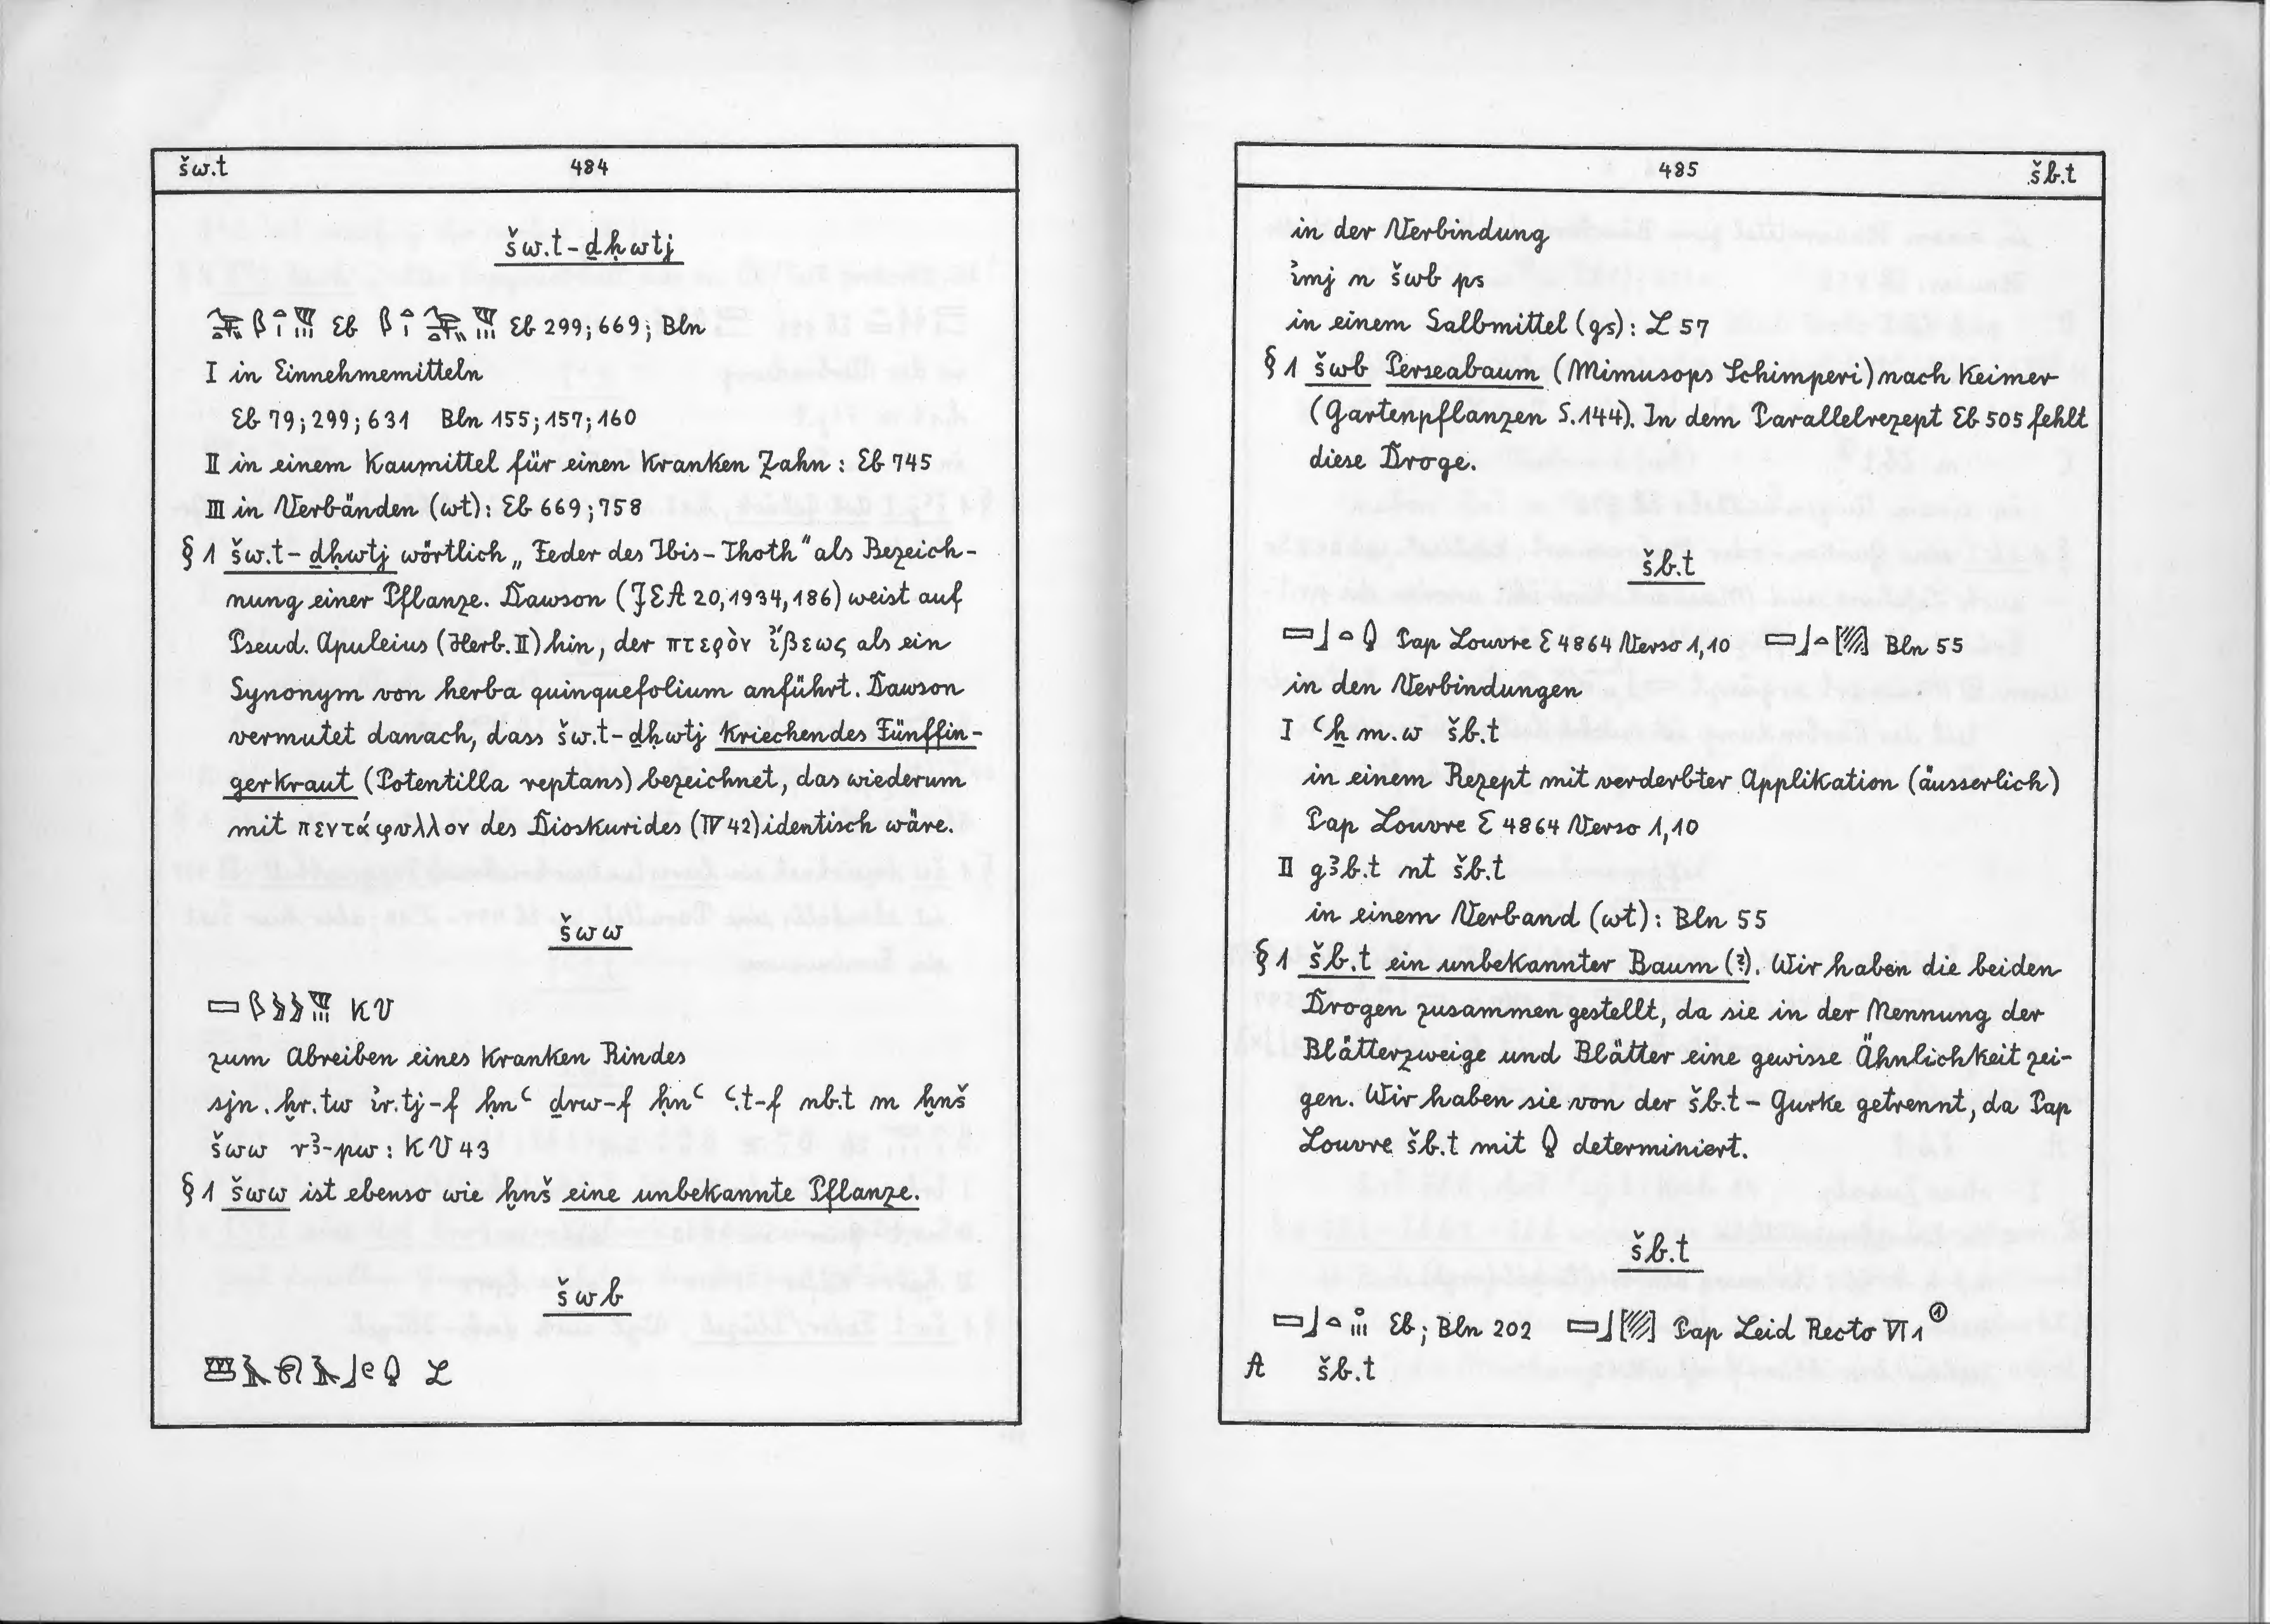 šw.t 484
šw.t-ḏḥwtj
Eb Eb 299; 669; Bln
I in Einnehmemitteln
Eb 79; 299; 631 Bln 155; 157; 160
II in einem Kaumittel für einen kranken Zahn: Eb 745
III in Verbänden (wt): Eb 669; 758
§ 1 šw.t-ḏḥwtj wörtlich „Feder des Ibis-Thoth" als Bezeich-
nung einer Pflanze. Dawson (JEA 20, 1934, 186) weist auf
Pseud. Apuleius (Herb. II) hin, der πτερὸν ἴβεως als ein
Synonym von herba quinquefolium anführt. Dawson
vermutet danach, dass šw.t-ḏḥwtj kriechendes Fünffin-
gerkraut (Potentilla reptans) bezeichnet, das wiederum
mit πεντάφυλλον des Dioskurides (IV 42) identisch wäre.
šww
KV
zum Abreiben eines kranken Rindes
sjn.ḫr.tw ỉr.tj-f ḥnꜥ ḏrw-f ḥnꜥ ꜥ.t-f nb.t m ḫnš
šww rꜣ-pw: KV 43
§ 1 šww ist ebenso wie ḫnš eine unbekannte Pflanze.
šwb
L
485 šb.t
in der Verbindung
ỉmj n šwb ps
in einem Salbmittel (gs): L 57
§ 1 šwb Perseabaum (Mimusops Schimperi) nach Keimer
(Gartenpflanzen S. 144). In dem Parallelrezept Eb 505 fehlt
diese Droge.
šb.t
Pap Louvre E 4864 Verso 1,10 Bln 55
in den Verbindungen
I ꜥẖm.w šb.t
in einem Rezept mit verderbter Applikation (äusserlich)
Pap Louvre E 4864 Verso 1,10
II gꜣb.t nt šb.t
in einem Verband (wt): Bln 55
§ 1 šb.t ein unbekannter Baum (?). Wir haben die beiden
Drogen zusammengestellt, da sie in der Nennung der
Blätterzweige und Blätter eine gewisse Ähnlichkeit zei-
gen. Wir haben sie von der šb.t-Gurke getrennt, da Pap
Louvre šb.t mit determiniert.
šb.t
Eb; Bln 202 Pap Leid Recto VI 1 ①
A šb.t